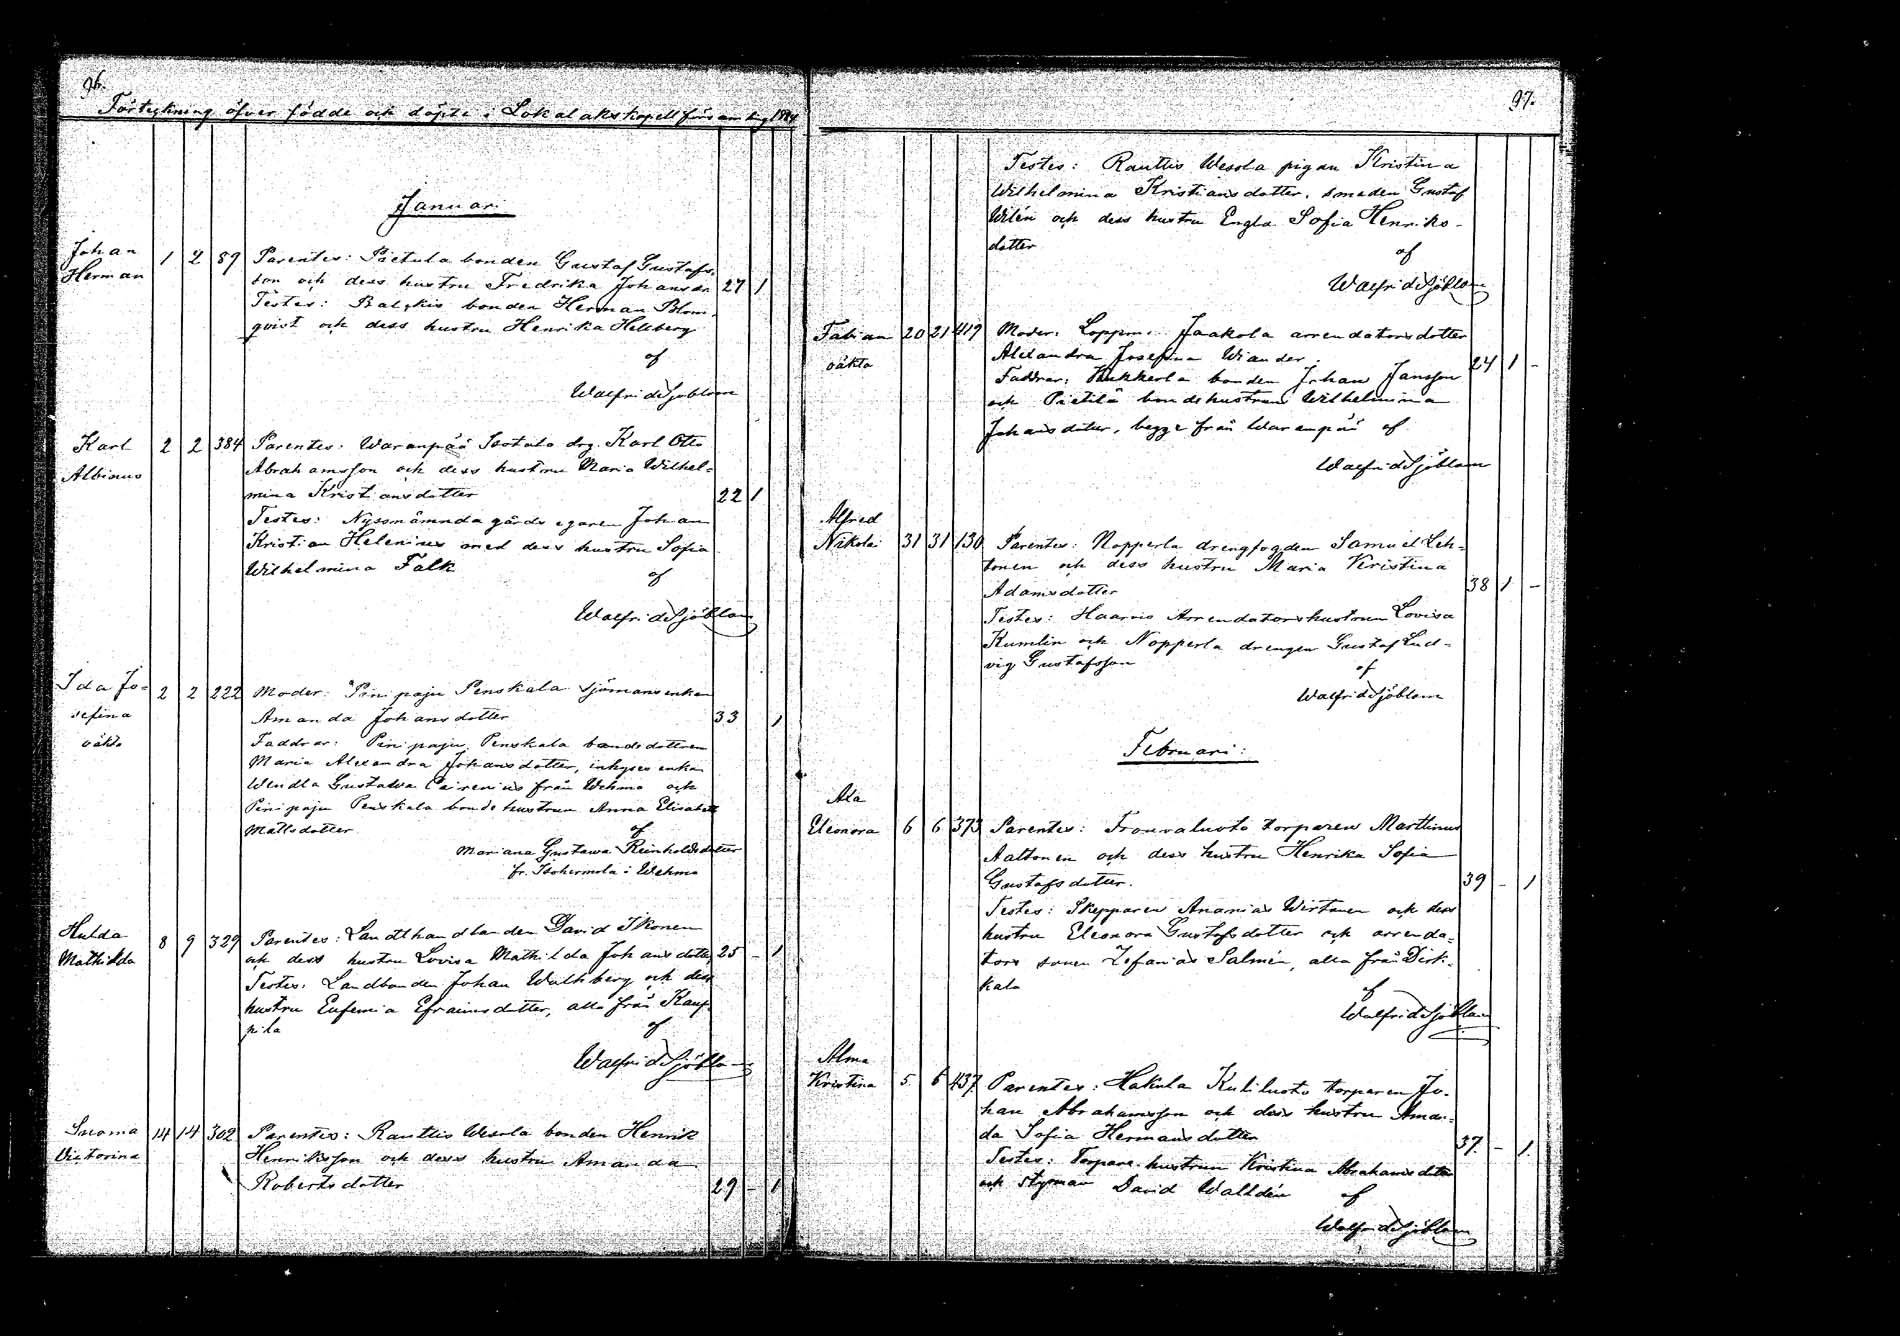 96.
Förteckning öfver födde och döpte i Lokalaks kapellförsamling
Januari
Johan Herman 1 2 89 Parentes: Pietula bonden Gustaf Gustafs-
son och dess hustru Fredrika Johansdr 27 1
Testes: Balckis bonden Herman Blom-
qvist och dess hustru Henrika Hellberg
af
Walfrid Sjöblom
Karl Albinus 2 2 384 Parentes: Waranpää Isotalo drg. Karl Otto
Abrahamsson och dess hustru Maria Wilhel-
mina Kristiansdotter 22 1
Testes: Nyssnämnda gårds egaren Johan
Kristian Helenius med dess hustru Sofia
Wilhelmina Falk
af
Walfrid Sjöblom
Ida Jo-
sefina
oäkta 2 2 222 Moder: Pinipaju Penskala sjömansenkan
Amanda Johansdotter 33 1
Faddrar: Pinipaju Penskala bondedottren
Maria Alexandra Johansdotter, inhyses enkan
Wendla Gustawa från Wehmo och
Pinipaju Penskala bondehustrun Anna Elisabet
Mattsdotter
af
Mariana Gustawa Reinholdsdotter
fr. Isohermola i Wehmo
Hulda Mathilda 8 9 329 Parentes: Landthandlanden David Ikonen
och dess hustru Lovisa Mathilda Johansdotter 25 - 1
Testes: Landbonden Johan Wallberg och dess
hustru Eufemia Efraimsdotter, alla från Kaup-
pila
af
Walfrid Sjöblom
Suoma Victorina 14 14 302 Parentes: Rauttis Wesola bonden Henrik
Henriksson och dess hustru Amanda
Robertsdotter 29 - 1
97.
Testes: Rauttis Wesola pigan Kristina
Wilhelmina Kristiansdotter, smeden Gustaf
Wilén och dess hustru Engla Sofia Henriks-
dotter
af
Walfrid Sjöblom
Fabian
oäkta 20 21 419 Moder: Jaakola arrendatorsdotter
Alexandra Josefina Wiander. 24 1 -
Faddrar: Kukkerla bonden Johan Jansson
och Pietilä bondehustrun Wilhelmina
Johansdotter, begge från Waranpää af
Walfrid Sjöblom
Alfred
Nikolai 31 31 130 Parentes: Nopperla drengfogden Samuel Leh-
tonen och dess hustru Maria Kristina
Adamsdotter 38 1 -
Testes: Haarvis Arrendatorshustrun Lovisa
Kumlin och Nopperla drengen Gustaf Lud-
vig Gustafsson
af
Walfrid Sjöblom
Februari:
Ada
Eleonora 6 6 373 Parentes: torparen Marttinus
Aaltonen och dess hustru Henrika Sofia
Gustafsdotter. 39 - 1
Testes: Skepparen Ananias Wirtanen och dess
hustru Eleonora Gustafsdotter och arrenda-
tors sonen Zefanias Salmén, alla från Dirk-
kala
af
Walfrid Sjöblom
Alma
Kristina 5. 6 437 Parentes: Hakula Kuliluoto torparen Jo-
han Abrahamsson och dess hustru Aman-
da Sofia Hermansdotter 37. - 1.
Testes: Torpare hustrun Kristina Abrahamsdotter
och Styrman David Walldén af
Walfrid Sjöblom